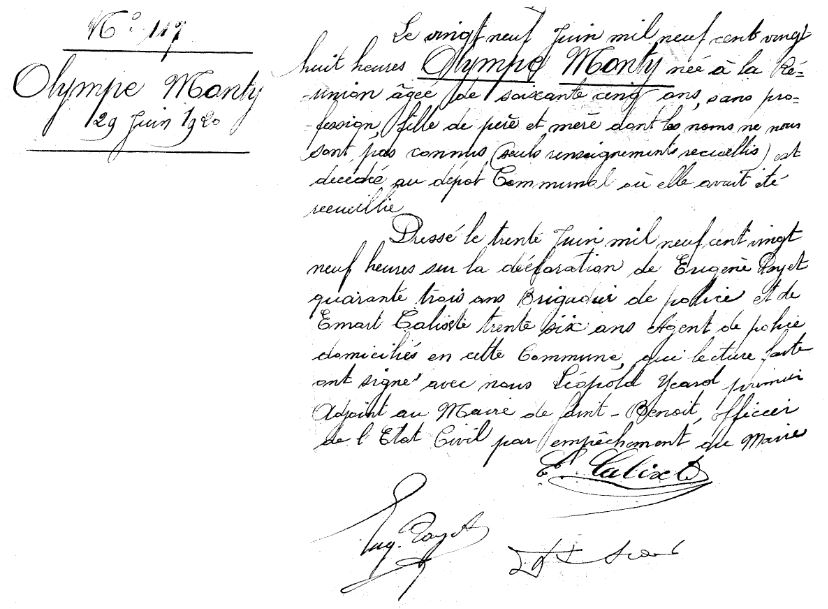 N° 117
Olympe Monty
29 Juin 1920
Le vingt neuf Juin mil neuf cent vingt
huit heures Olympe Monty née à la Ré-
-union âgée de soixante cinq ans, sans pro-
-fession, fille de père et mère dont les noms ne nous
sont pas connus (seuls renseignements recueillis) est
décédée au dépôt Communal où elle avait été
recueillie
Dressé le trente Juin mil neuf cent vingt
neuf heures sur la déclaration de Eugène Payet
quarante trois ans Brigadier de police et de
Emart Calixte trente six ans Agent de police
domiciliés en cette Commune, qui lecture faite
ont signé avec nous Léopold Ycard premier
Adjoint au Maire de Saint-Benoit, officier
de l'Etat Civil par empêchement du Maire
Et Calixte
Eug. Payet